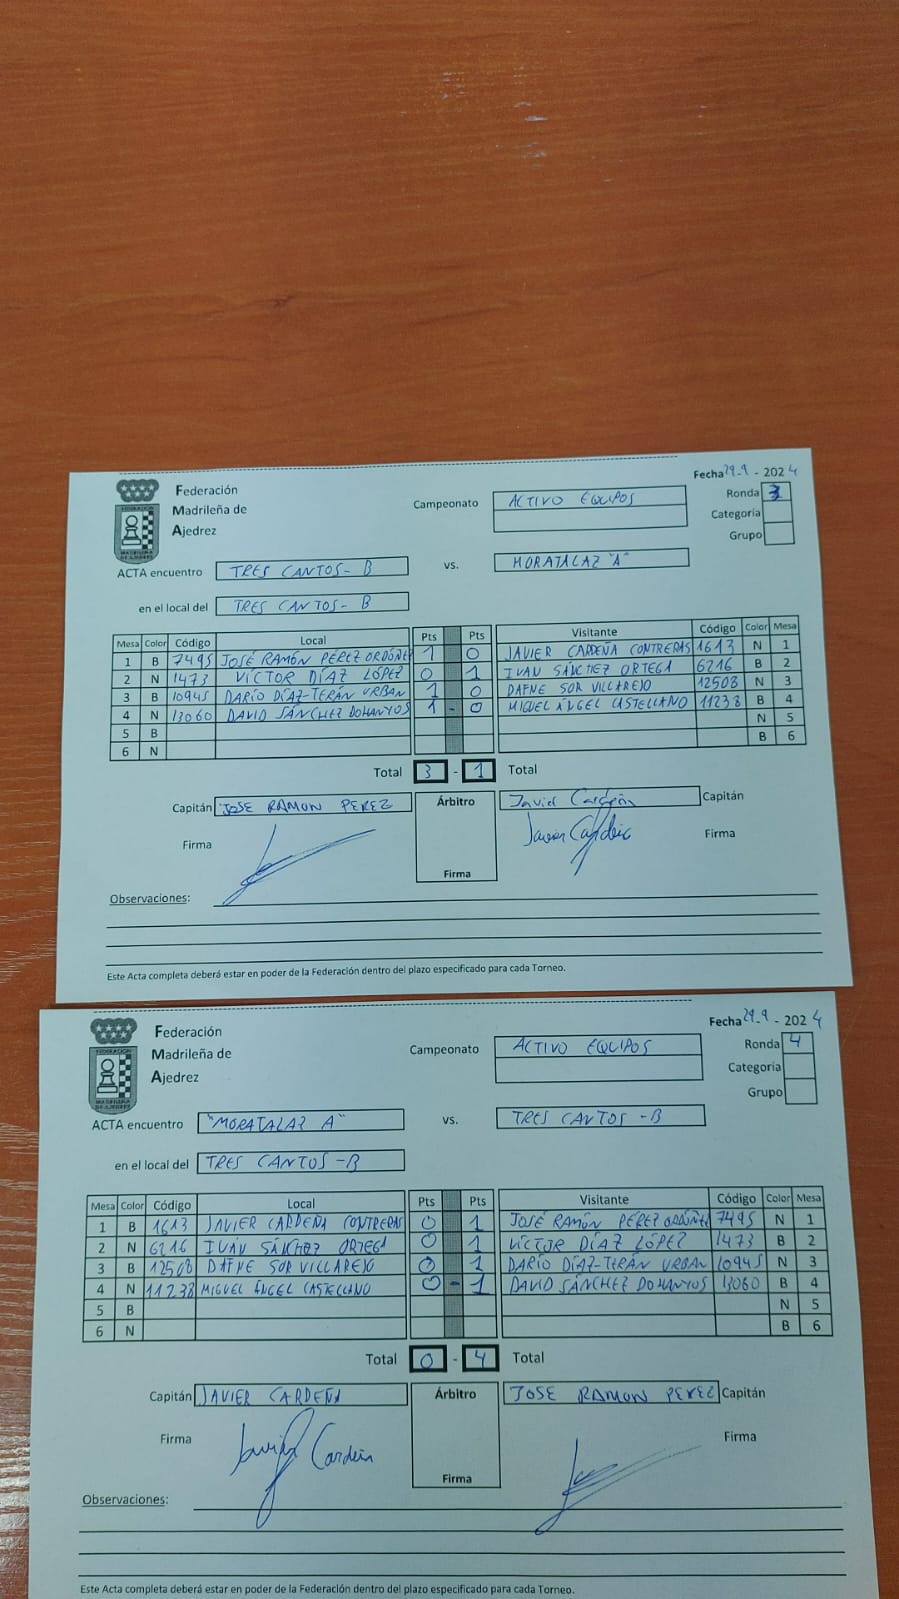 Federación
Madrileña de
Ajedrez
Fecha 29-9 - 2024
Campeonato ACTIVO EQUIPOS
Ronda 3
Categoría
Grupo
ACTA encuentro TRES CANTOS-B vs. MORATALAZ "A"
en el local del TRES CANTOS-B
Mesa Color Código Local Pts Pts Visitante Código Color Mesa
1 B 7495 JOSÉ RAMÓN PÉREZ ORDÓÑEZ 1 0 JAVIER CARDEÑA CONTRERAS 1613 N 1
2 N 1473 VÍCTOR DÍAZ LÓPEZ 0 1 IVAN SÁNCHEZ ORTEGA 6216 B 2
3 B 10945 DARÍO DÍAZ-TERÁN URBAN 1 0 DAFNE SOR VILLAREJO 12508 N 3
4 N 13060 DAVID SÁNCHEZ DOHANYOS 1 - 0 MIGUEL ÁNGEL CASTELLANO 11238 B 4
5 B N 5
6 N B 6
Total 3 - 1 Total
Capitán JOSE RAMON PEREZ Árbitro Javier Cardeña Capitán
Firma Javier Cardeña Firma
Firma
Observaciones:
Este Acta completa deberá estar en poder de la Federación dentro del plazo especificado para cada Torneo.
Federación
Madrileña de
Ajedrez
Fecha 29-9 - 2024
Campeonato ACTIVO EQUIPOS
Ronda 4
Categoría
Grupo
ACTA encuentro "MORATALAZ A" vs. TRES CANTOS-B
en el local del TRES CANTOS-B
Mesa Color Código Local Pts Pts Visitante Código Color Mesa
1 B 1613 JAVIER CARDEÑA CONTRERAS 0 1 JOSÉ RAMÓN PÉREZ ORDÓÑEZ 7495 N 1
2 N 6216 IVÁN SÁNCHEZ ORTEGA 0 1 VÍCTOR DÍAZ LÓPEZ 1473 B 2
3 B 12508 DAFNE SOR VILLAREJO 0 1 DARÍO DÍAZ-TERÁN URBAN 10945 N 3
4 N 11238 MIGUEL ÁNGEL CASTELLANO 0 - 1 DAVID SÁNCHEZ DOHANYOS 13060 B 4
5 B N 5
6 N B 6
Total 0 - 4 Total
Capitán JAVIER CARDEÑA Árbitro JOSE RAMON PEREZ Capitán
Firma Javier Cardeña Firma
Firma
Observaciones:
Este Acta completa deberá estar en poder de la Federación dentro del plazo especificado para cada Torneo.